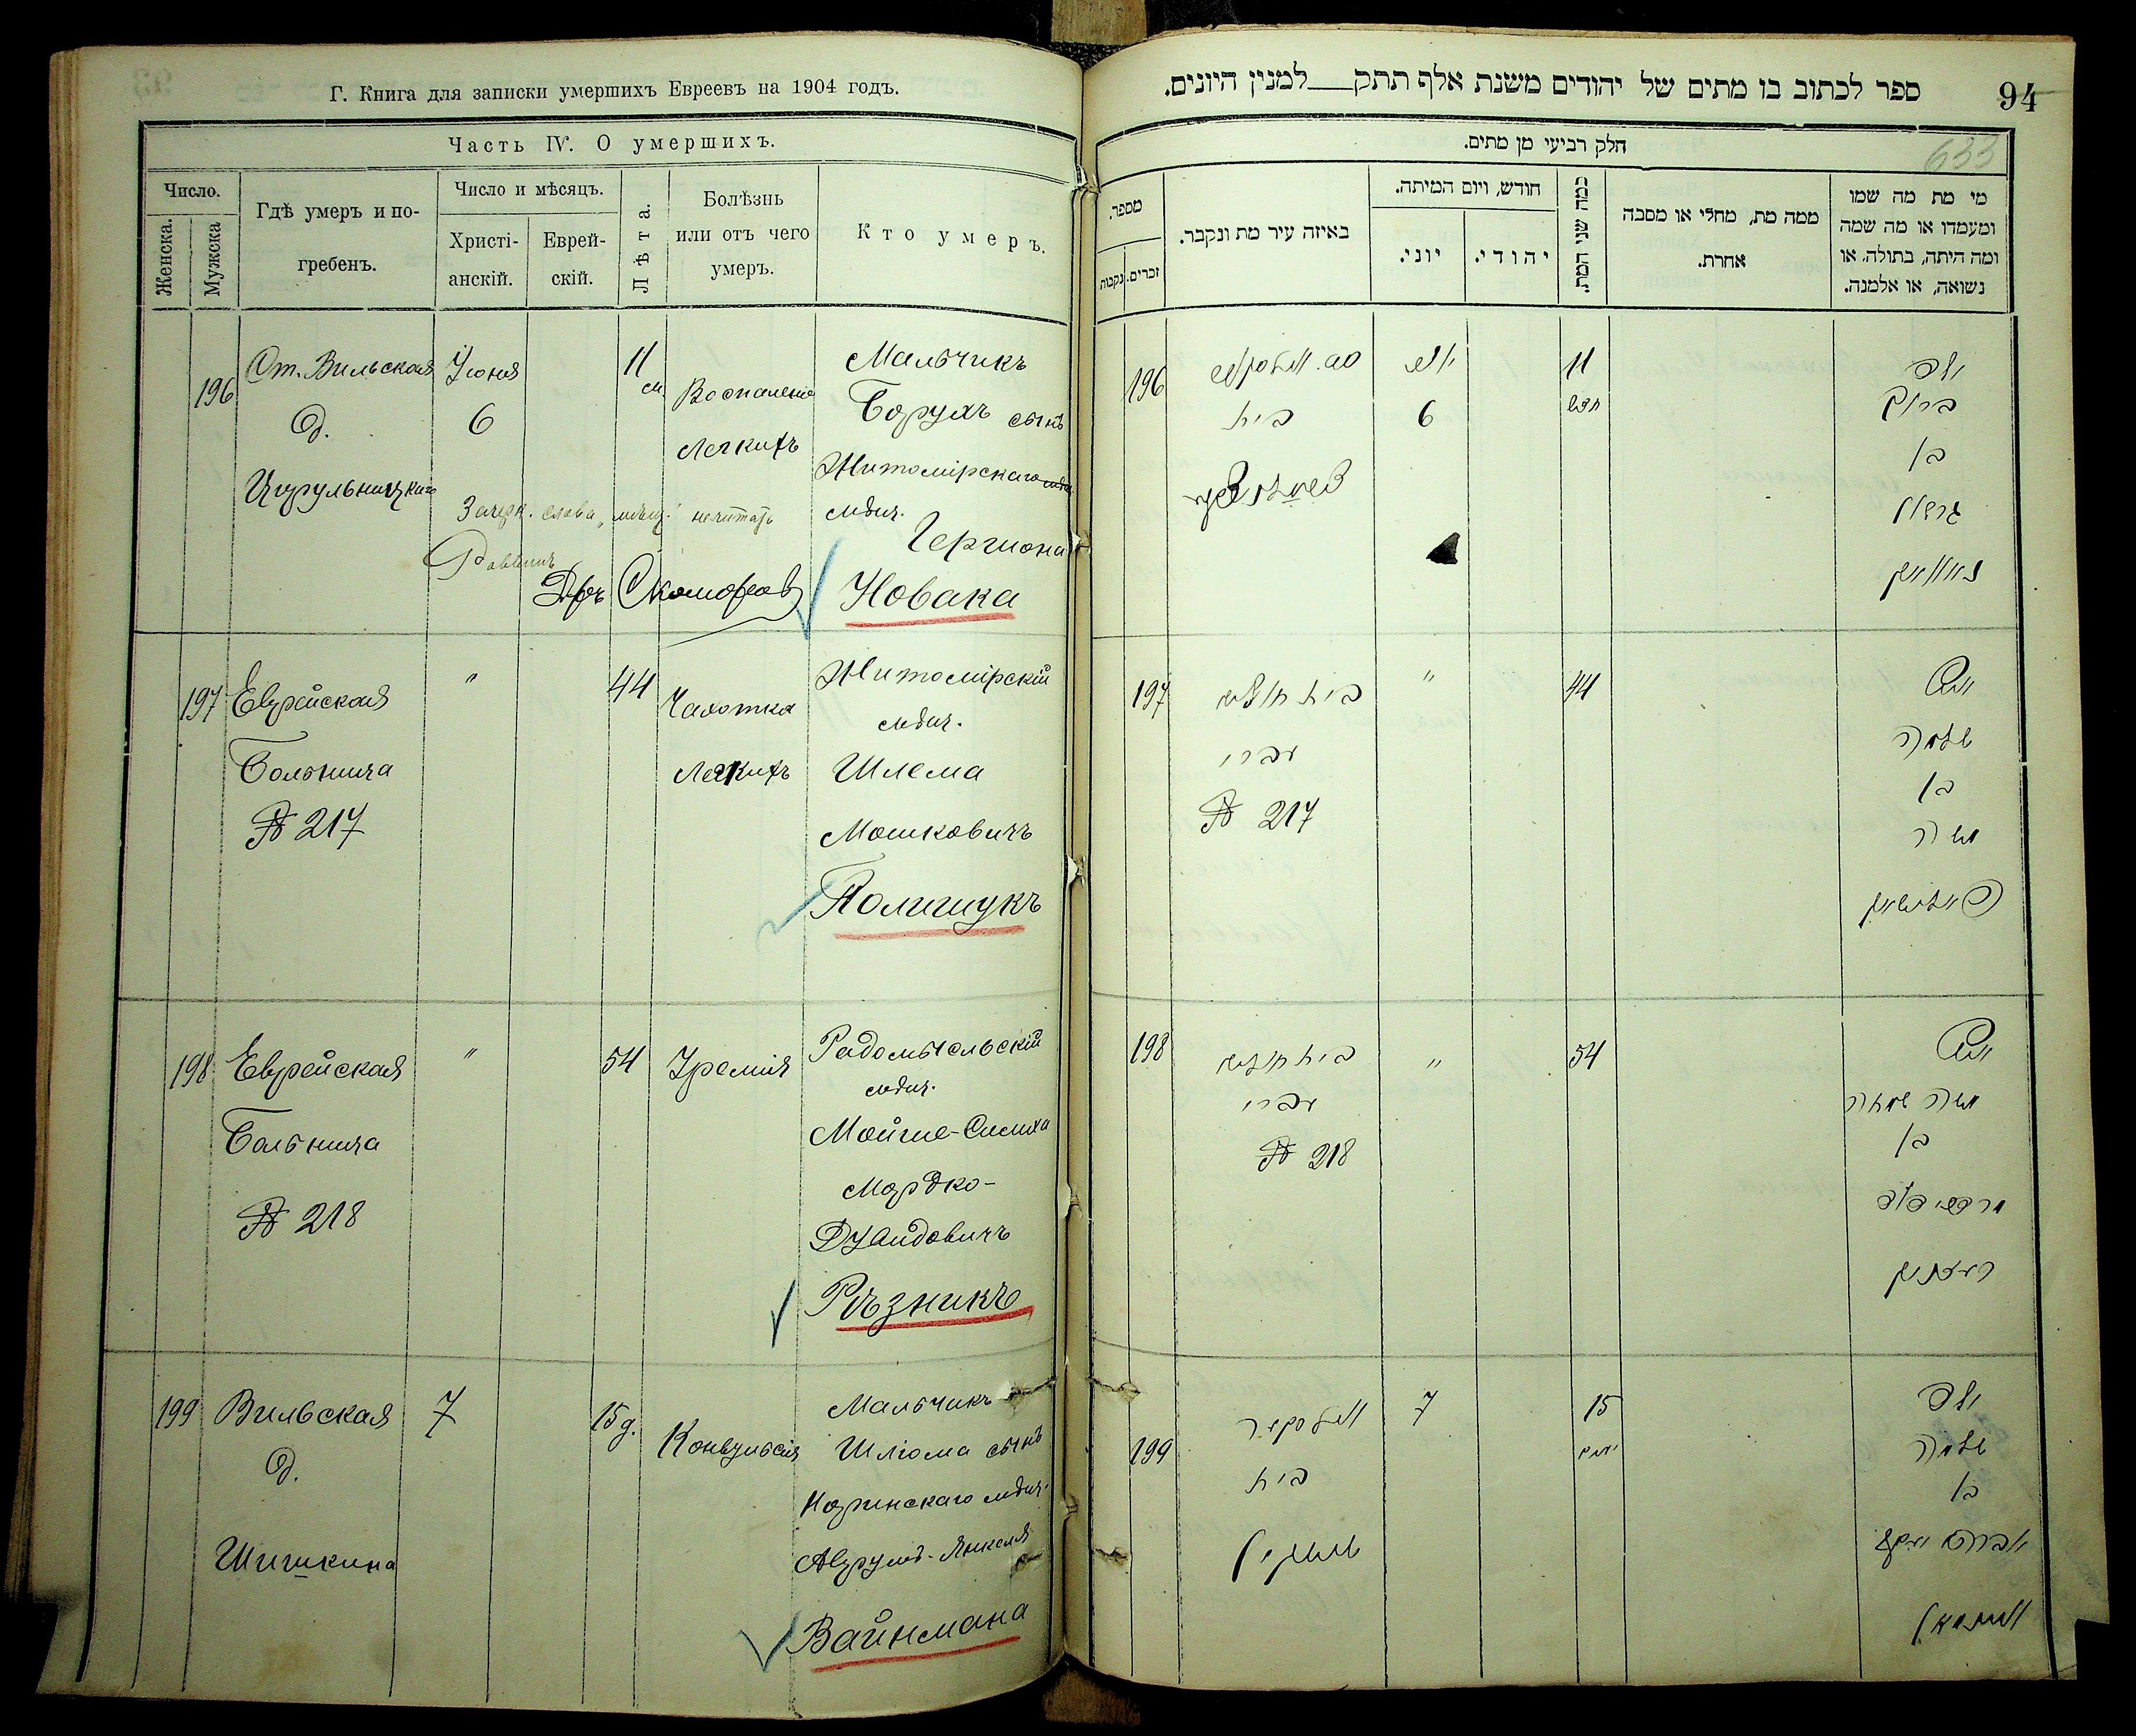 Г. Книга для записки умершихъ Евреевъ на 1904 годъ.
Часть IV. О умершихъ.
Число.
Женска.
Мужска
Гдѣ умеръ и по-
гребенъ.
Число и мѣсяцъ.
Христі-
анскій.
Еврей-
скій.
Лѣта.
Болѣзнь
или отъ чего
умеръ.
Кто умеръ.
196
Ст. Вильская
д.
Цирульницкаго
Іюня
6
11
м.
Воспаленіе
Легкихъ
Мальчикъ
Борухъ сынъ
Житомірскаго
мѣщ.
Гершона
Новака
Зачерк. слова „мѣщ.“ нечитать
Раввинъ
197
Еврейская
Больница
№ 217
"
44
Чахотка
Легкихъ
Житомірскій
мѣщ.
Шлема
Мошковичъ
Полищукъ
198
Еврейская
Больница
№ 218
"
54
Уремія
Радомысльскій
мѣщ.
Мойше-Симха
Мордко-
Дувидовичъ
Рѣзникъ
199
Вильская
д.
Шишкина
7
15 д.
Конвульсія
Мальчикъ
Шлиома сынъ
Норинскаго мѣщ.
Аврумъ-Янкеля
Вайнмана
ספר לכתוב בו מתים של יהודים משנת אלף תתק למנין היונים.
94
633
חלק רביעי מן מתים.
מספר.
זכרים.
נקבות
באיזה עיר מת ונקבר.
חודש, ויום המיתה.
יוני.
יהודי.
כמה שני המת.
ממה מת, מחלי או מסבה
אחרת.
מי מת מה שמו
ומעמדו או מה שמה
ומה היתה, בתולה, או
נשואה, או אלמנה.
196
בית
יוני
6
11
חדש
ילד
ברוך
בן
גרשון
נאוואק
197
בית חולים
עברי
№ 217
"
44
מת
שלמה
בן
משה
פאלישוק
198
בית חולים
עברי
№ 218
"
54
מת
משה שמחה
בן
מרדכי דוד
רעזניק
199
ווילסקא
בית
שישקין
7
15
ימים
ילד
שלמה
בן
אברהם יעקב
וויינמאן